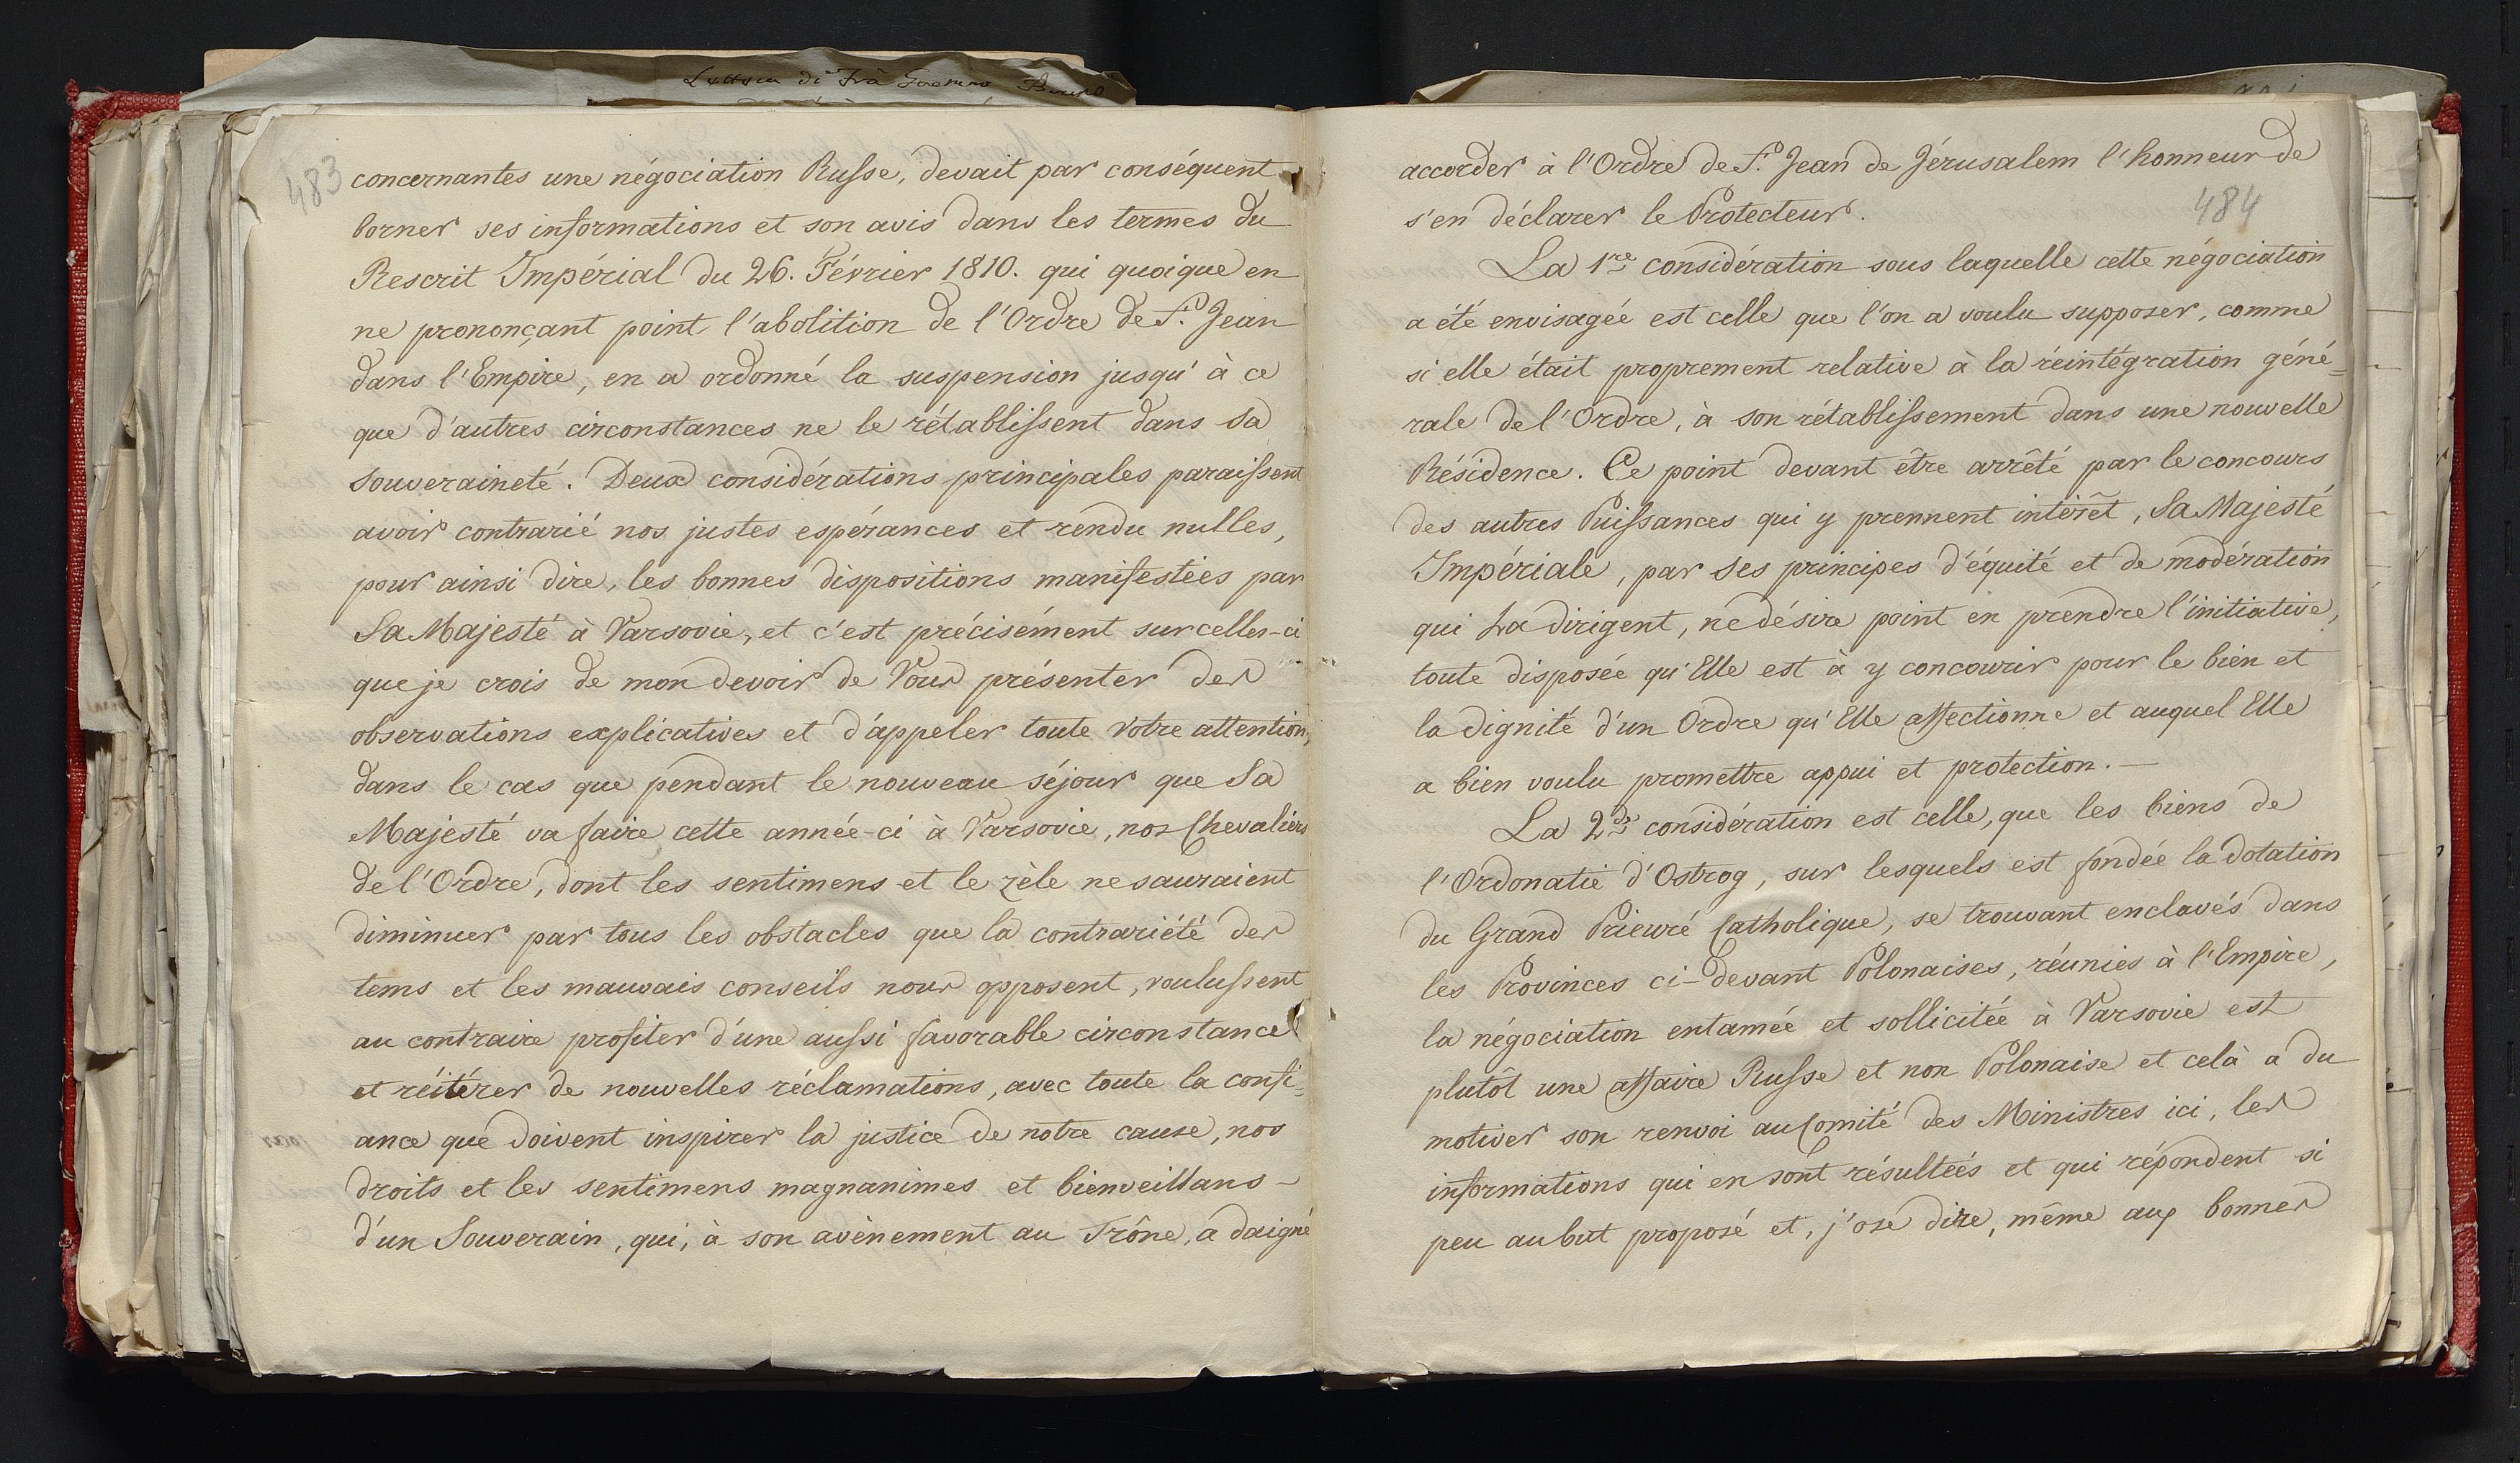 Lettera di Frà
483
concernantes une négociation Russe, devait par conséquent
borner ses informations et son avis dans les termes du
Rescrit Impérial du 26. Février 1810. qui quoique en
ne prononçant point l'abolition de l'Ordre de St. Jean
dans l'Empire, en a ordonné la suspension jusqu'à ce
que d'autres circonstances ne le rétablissent dans sa
souveraineté. Deux considérations principales paraissent
avoir contrarié nos justes espérances et rendu nulles,
pour ainsi dire, les bonnes dispositions manifestées par
Sa Majesté à Varsovie, et c'est précisément sur celles-ci
que je crois de mon devoir de Vous présenter des
observations explicatives et d'appeler toute Votre attention,
dans le cas que pendant le nouveau séjour que Sa
Majesté va faire cette année-ci à Varsovie, nos Chevaliers
de l'Ordre, dont les sentimens et le zèle ne sauraient
diminuer par tous les obstacles que la contrariété des
tems et les mauvais conseils nous opposent, voulussent
au contraire profiter d'une aussi favorable circonstance
et réitérer de nouvelles réclamations, avec toute la confi-
ance que doivent inspirer la justice de notre cause, nos
droits et les sentimens magnanimes et bienveillans -
d'un Souverain, qui, à son avènement au Trône, a daigné
accorder à l'Ordre de St. Jean de Jérusalem l'honneur de
484
s'en déclarer le Protecteur.
La 1re considération sous laquelle cette négociation
a été envisagée est celle que l'on a voulu supposer, comme
si elle était proprement relative à la réintégration géné=
rale de l'Ordre, à son rétablissement dans une nouvelle
Résidence. Ce point devant être arrêté par le concours
des autres Puissances qui y prennent intérêt, Sa Majesté
Impériale, par ses principes d'équité et de modération
qui La dirigent, ne désire point en prendre l'initiative,
toute disposée qu'Elle est à y concourir pour le bien et
la dignité d'un Ordre qu'Elle affectionne et auquel Elle
a bien voulu promettre appui et protection. —
La 2de considération est celle, que les biens de
l'Ordonatie d'Ostrog, sur lesquels est fondée la dotation
du Grand Prieuré Catholique, se trouvant enclavés dans
les Provinces ci-devant Polonaises, réunies à l'Empire,
la négociation entamée et sollicitée à Varsovie est
plutôt une affaire Russe et non Polonaise et celà a du
motiver son renvoi au Comité des Ministres ici, les
informations qui en sont résultées et qui répondent si
peu au but proposé et, j'ose dire, même aux bonnes